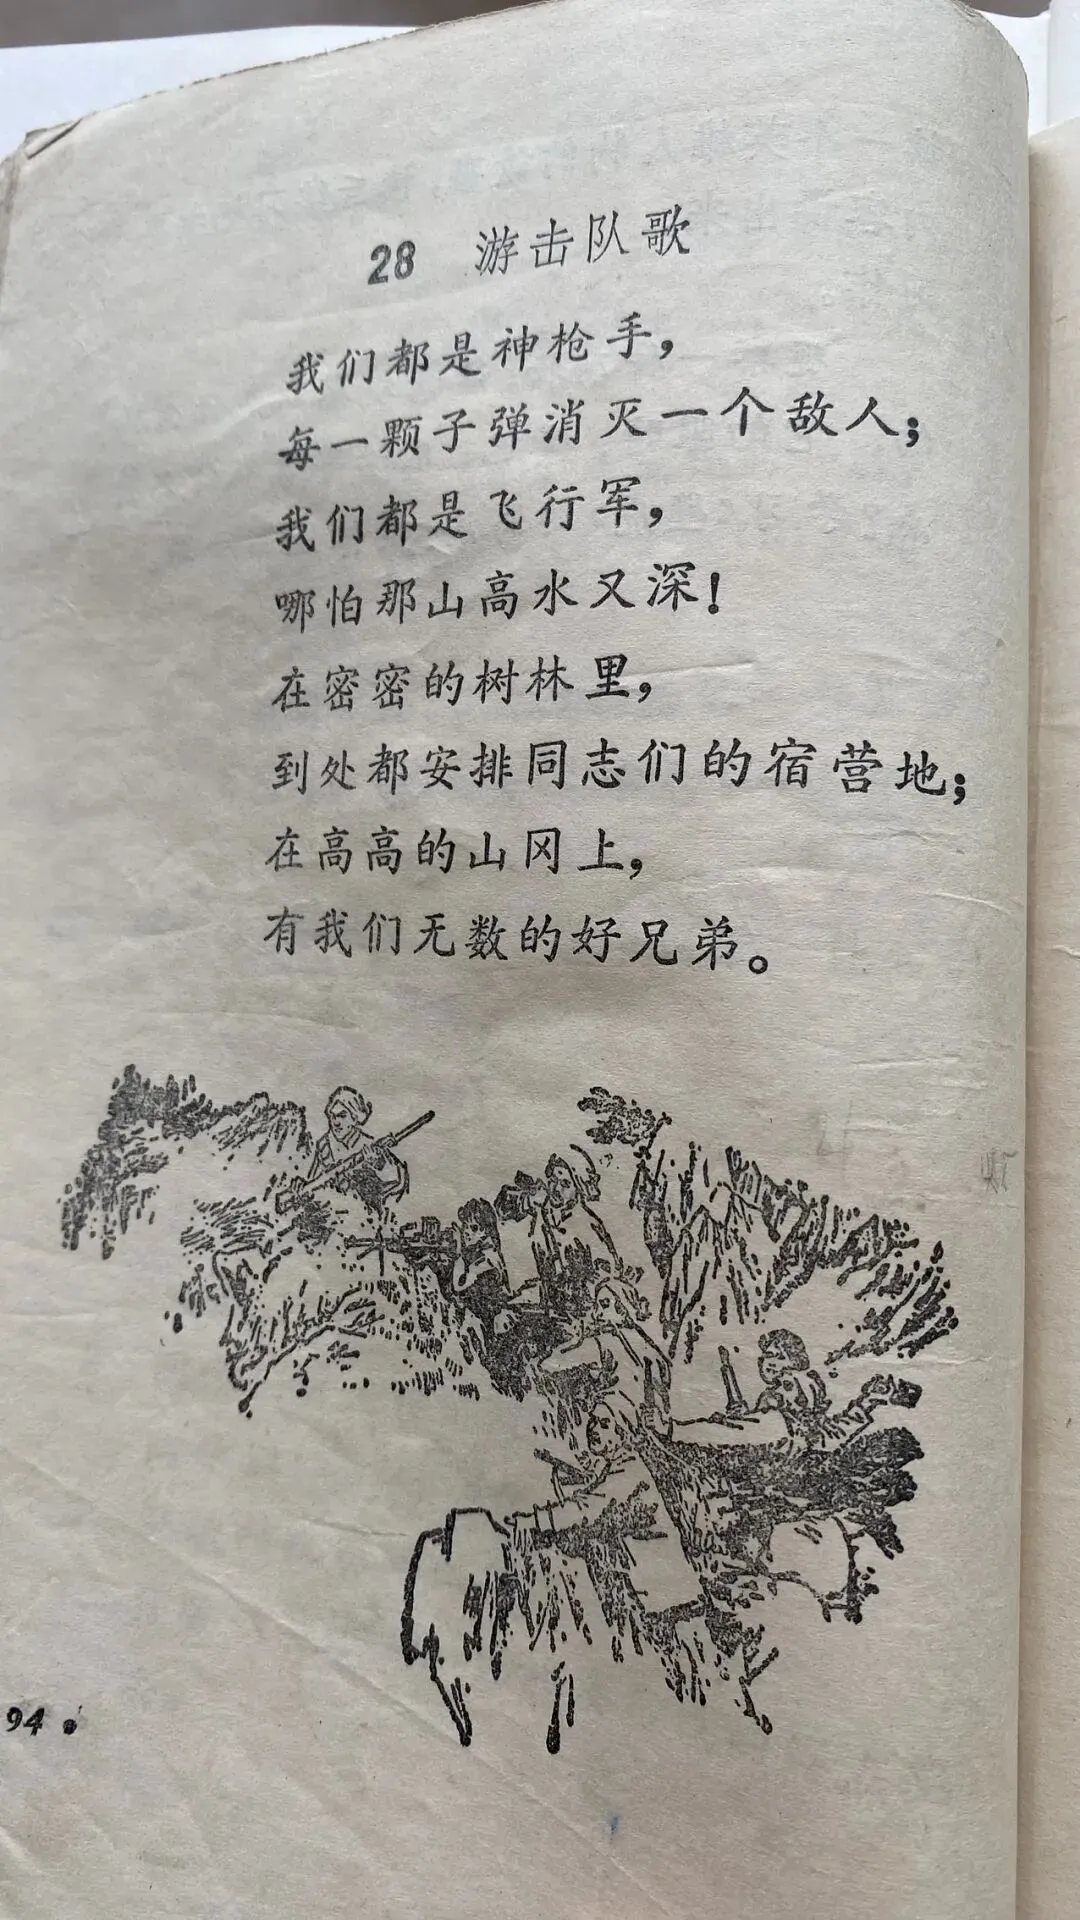 28 游击队歌
我们都是神枪手，
每一颗子弹消灭一个敌人；
我们都是飞行军，
哪怕那山高水又深！
在密密的树林里，
到处都安排同志们的宿营地；
在高高的山冈上，
有我们无数的好兄弟。
94 •